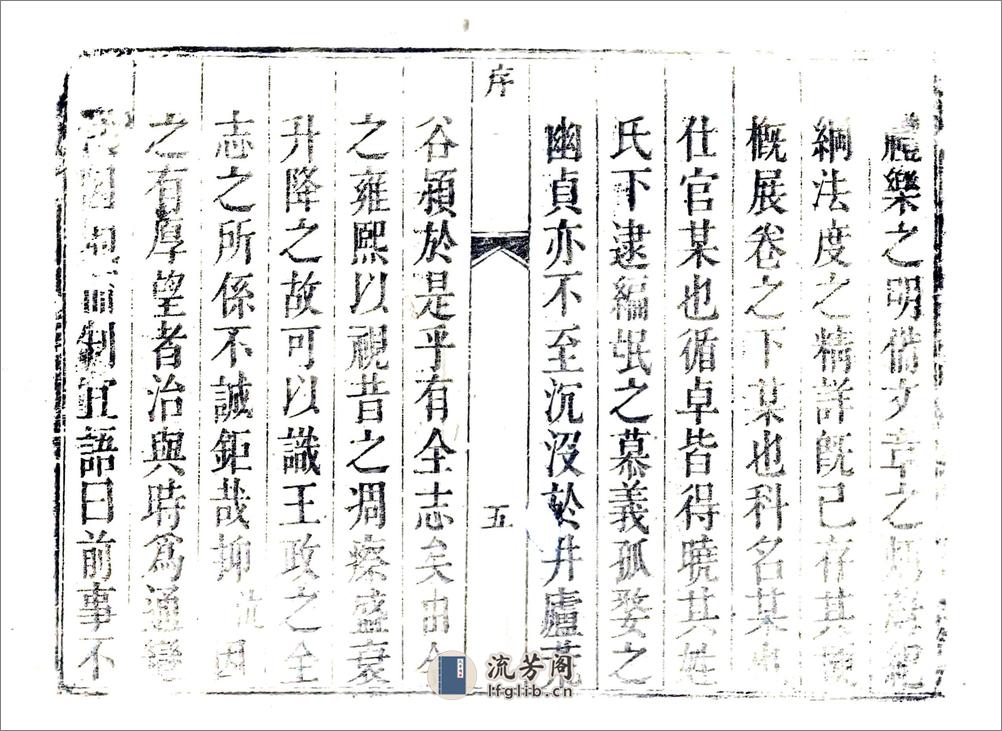 禮樂之明備文章之炳蔚紀
綱法度之精詳旣已存其梗
槪展卷之下某也科名某也
仕官某也循卓皆得曉其姓
氏下逮編氓之慕義孤嫠之
幽貞亦不至沉沒於井廬巖
序
五
谷潁於是乎有全志矣由今
之雍熙以視昔之凋瘵盛衰
升降之故可以識王政之全
志之所係不誠鉅哉抑 因
之有厚望者治與時為通變
因 而制宜語曰前事不
流芳阁
lfglib.cn